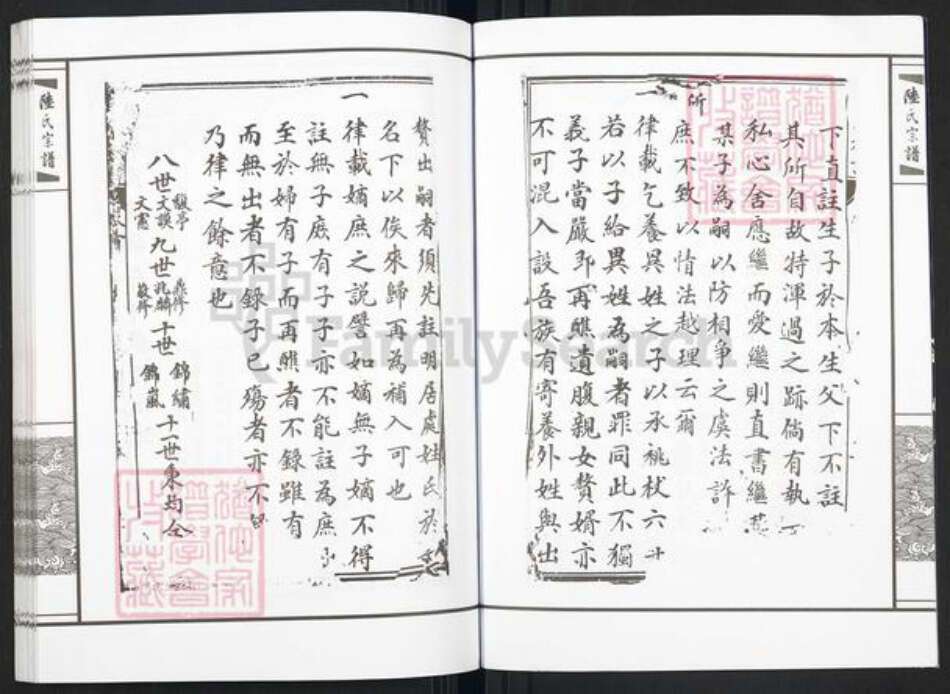 陸氏宗譜
下直註生子於本生父下不註
其所自故特渾過之跡倘有執
私心舍應繼而愛繼則直書繼
某子為嗣以防相爭之虞法許
所
庶不致以情法越理云爾
律載乞養異姓之子以承祧杖六十
若以子給異姓為嗣者罪同此不獨
義子當嚴即再醮遺腹親女贅婿亦
不可混入設吾族有寄養外姓與出
贅出嗣者須先註明居處姓氏於
名下以俟來歸再為補入可也
一
律載嫡庶之說譬如嫡無子嫡不得
註無子庶有子子亦不能註為庶
至於婦有子而再醮者不錄雖有
而無出者不錄子已殤者亦不
乃律之餘意也
八世 文謨 文憲 九世 兆麟 十世 錦繡 錦嵐 十一世 秉均 仝
陸氏宗譜
FamilySearch